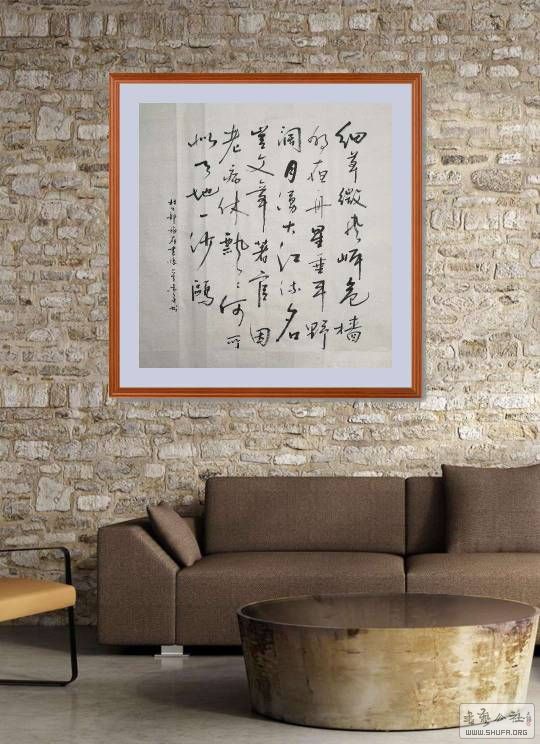 细草微风岸危檣
独夜舟星垂平野
阔月涌大江流名
岂文章著官因
老病休飘〻何所
似天地一沙鸥
书艺公社
WWW.SHUFA.ORG